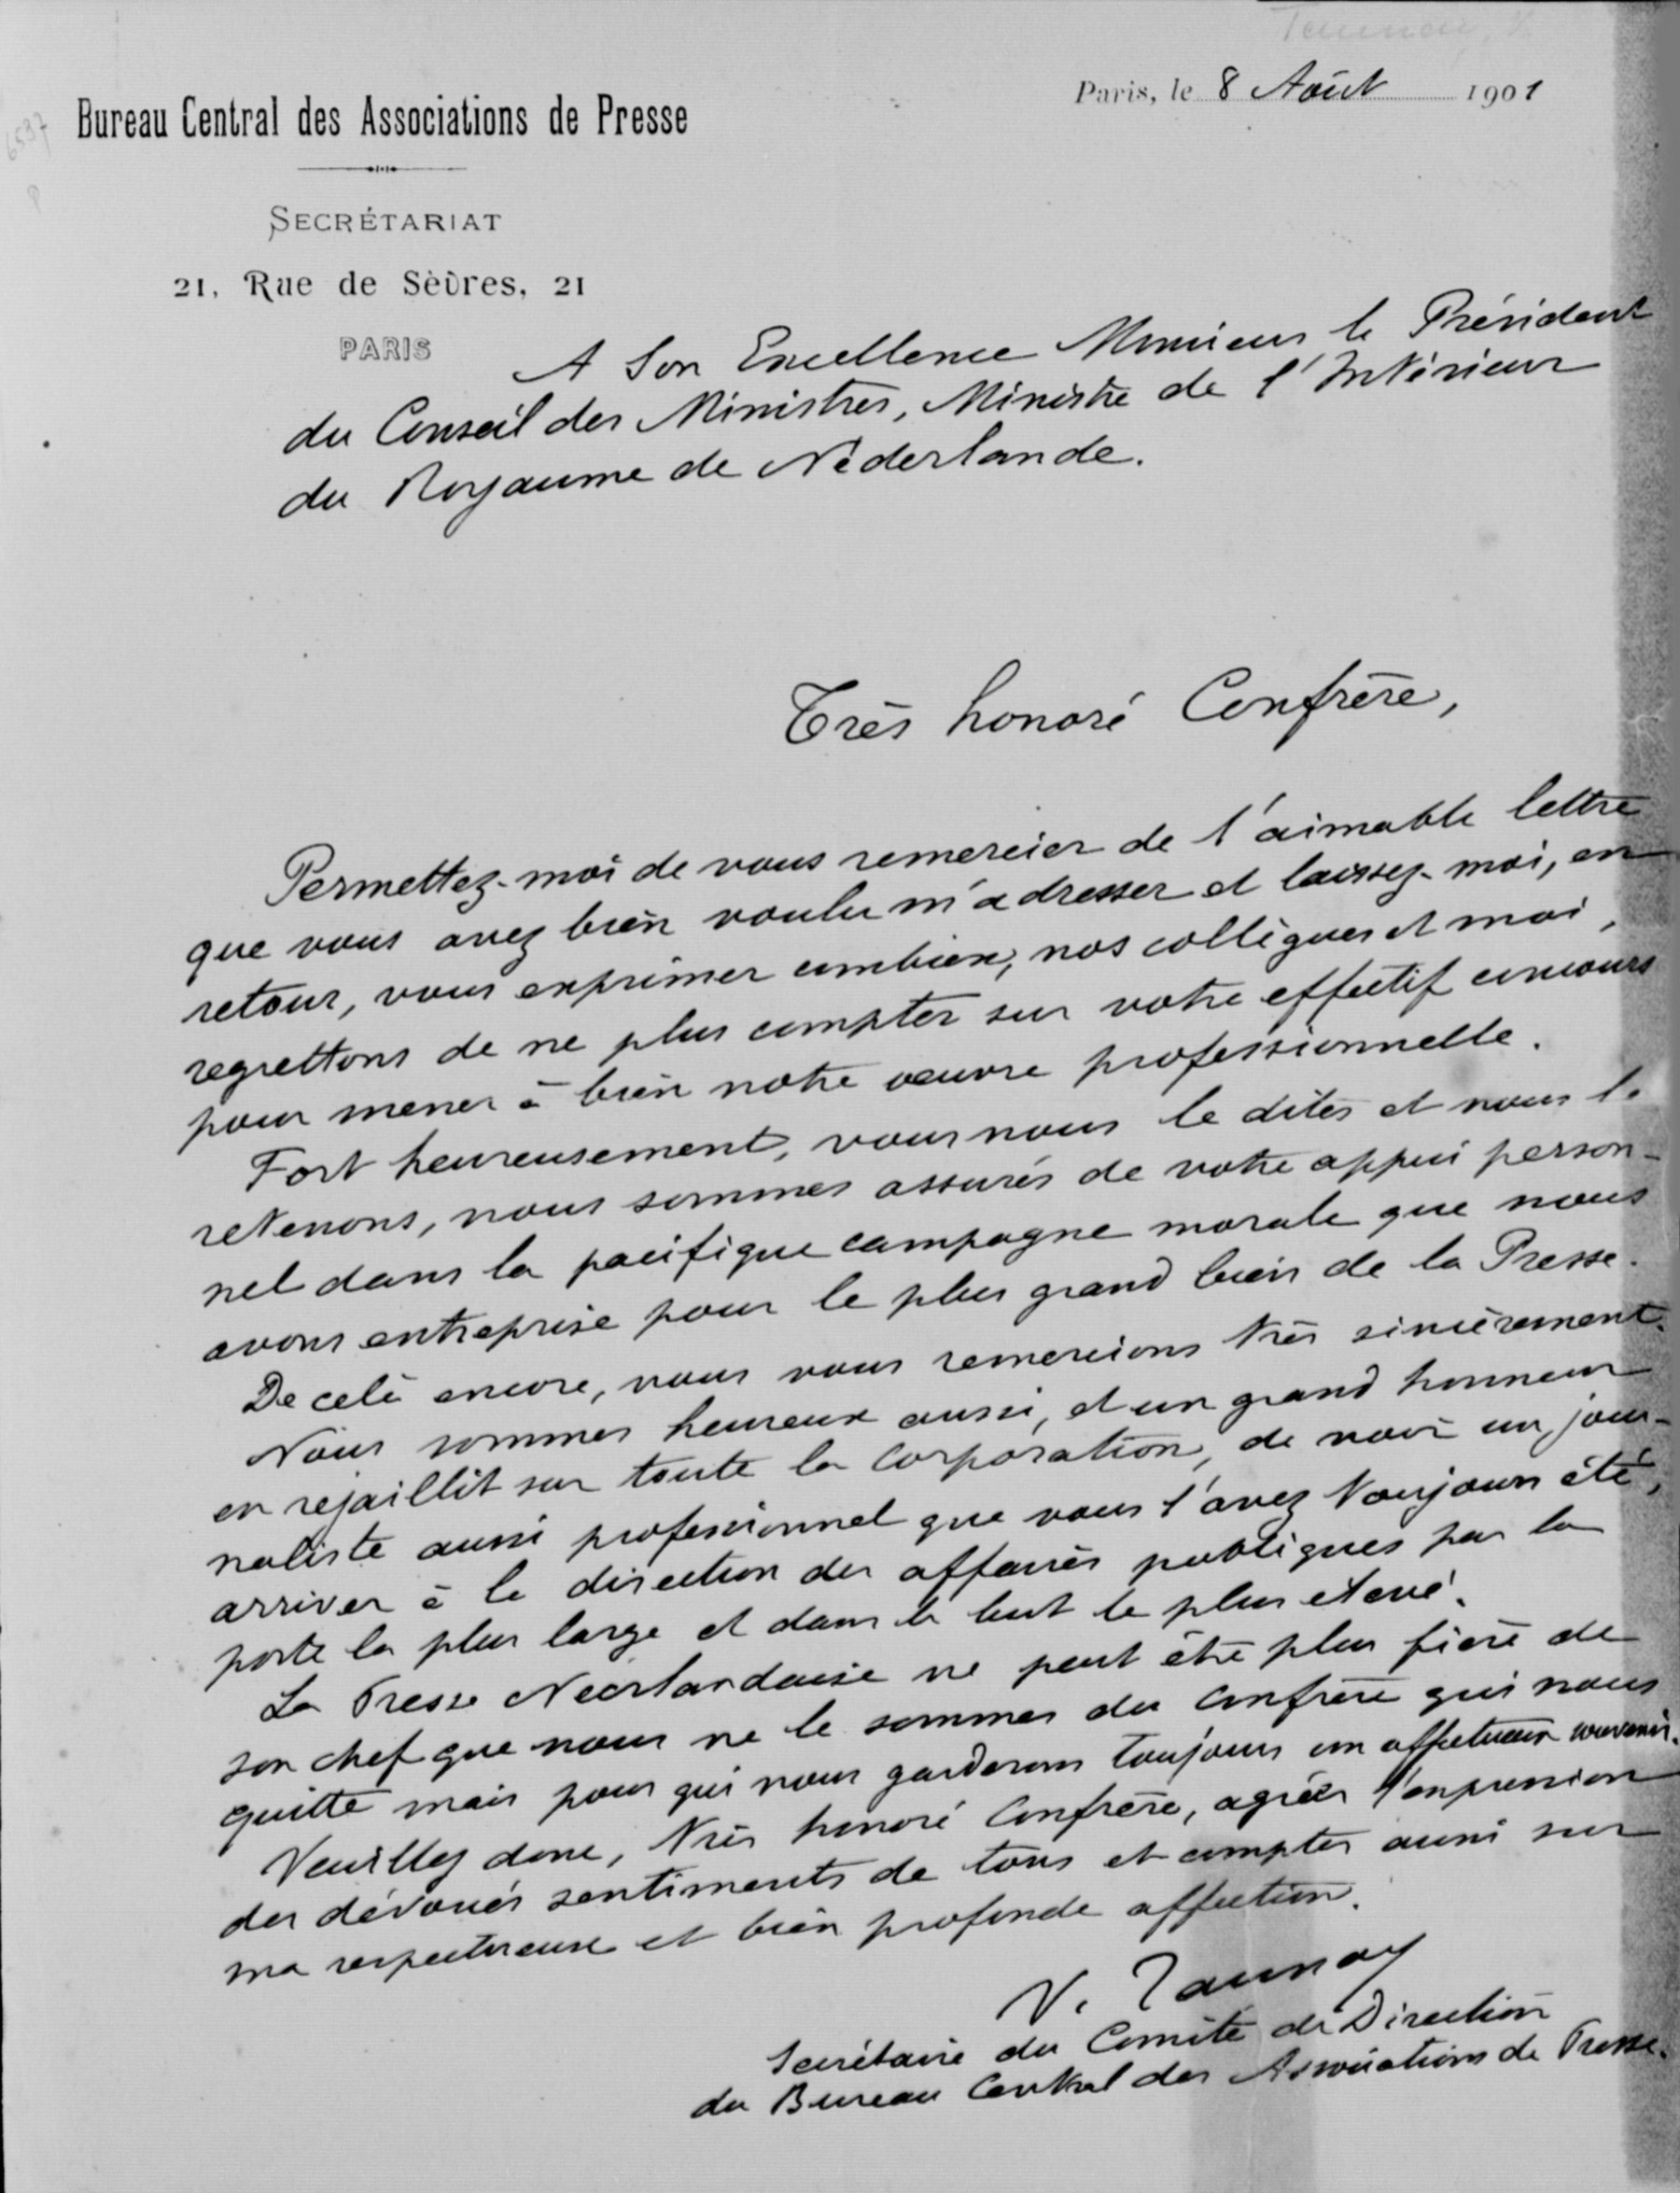 Paris, le 8 Août 1901
Bureau Central des Associations de Presse
SECRÉTARIAT
21, Rue de Sèvres, 21
PARIS
A Son Excellence Monsieur le Président
du Conseil des Ministres, Ministre de l'Intérieur
du Royaume de Néderlande.
Très honoré Confrère,
Permettez-moi de vous remercier de l'aimable lettre
que vous avez bien voulu m'adresser et laissez-moi, en
retour, vous exprimer combien, nos collègues et moi,
regrettons de ne plus compter sur votre effectif concours
pour mener à bien notre œuvre professionnelle.
Fort heureusement, vous nous le dites et nous le
retenons, nous sommes assurés de votre appui person-
nel dans la pacifique campagne morale que nous
avons entreprise pour le plus grand bien de la Presse.
De celà encore, nous vous remercions très sincèrement.
Nous sommes heureux aussi, et un grand honneur
en rejaillit sur toute la Corporation, de voir un jour-
naliste aussi professionnel que vous l'avez toujours été,
arriver à la direction des affaires publiques par la
porte la plus large et dans le but le plus élevé.
La Presse Néerlandaise ne peut être plus fière de
son chef que nous ne le sommes du Confrère qui nous
quitte mais pour qui nous garderons toujours un affectueux souvenir.
Veuillez donc, très honoré Confrère, agréer l'expression
des dévoués sentiments de tous et compter aussi sur
ma respectueuse et bien profonde affection.
V. Taunay
Secrétaire du Comité de Direction
du Bureau Central des Associations de Presse.